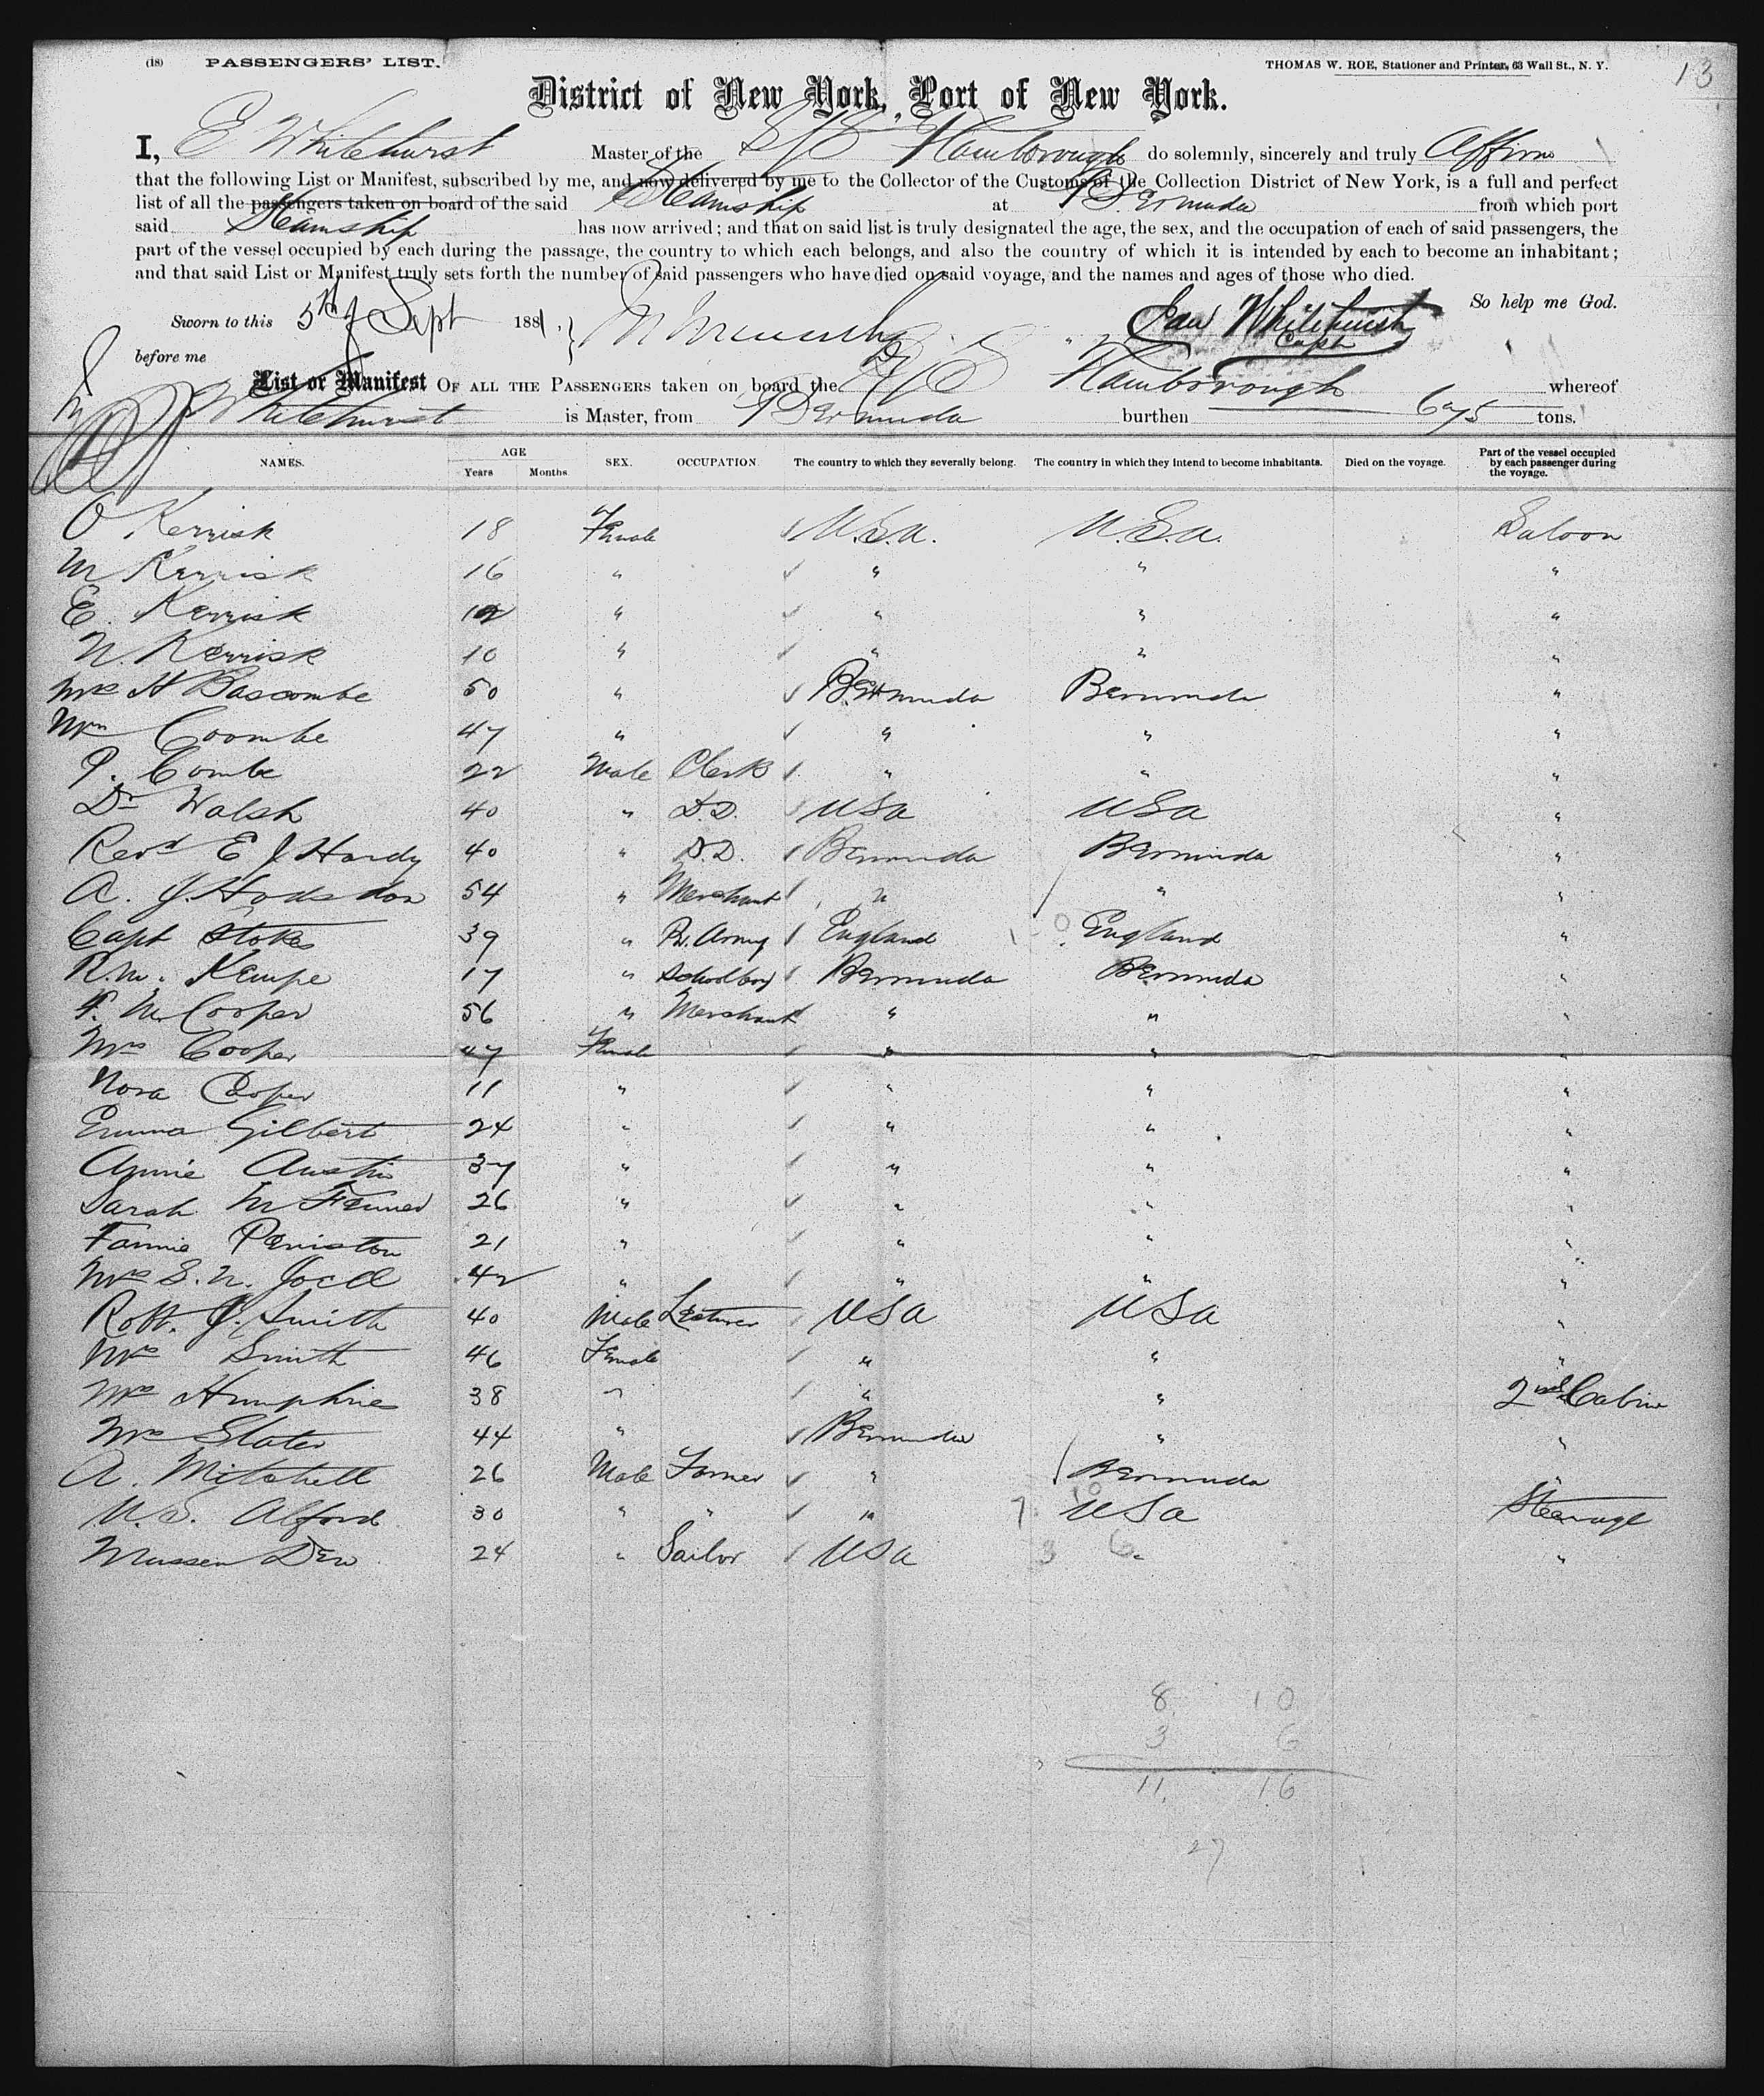 (18) PASSENGERS' LIST. THOMAS W. ROE, Stationer and Printer, 63 Wall St., N. Y. 13
District of New York, Port of New York.
I, E Whitehurst Master of the S/S Flamborough do solemnly, sincerely and truly Affirm
that the following List or Manifest, subscribed by me, and now delivered by me to the Collector of the Customs of the Collection District of New York, is a full and perfect
list of all the passengers taken on board of the said Steamship at Bermuda from which port
said Steamship has now arrived; and that on said list is truly designated the age, the sex, and the occupation of each of said passengers, the
part of the vessel occupied by each during the passage, the country to which each belongs, and also the country of which it is intended by each to become an inhabitant;
and that said List or Manifest truly sets forth the number of said passengers who have died on said voyage, and the names and ages of those who died.
So help me God.
Sworn to this 5th of Sept 1881, Whitehurst
before me Capt
List or Manifest OF ALL THE PASSENGERS taken on board the S/S Flamborough whereof
E Whitehurst is Master, from Bermuda burthen tons.
NAMES. AGE Years Months. SEX. OCCUPATION. The country to which they severally belong. The country in which they intend to become inhabitants. Died on the voyage. Part of the vessel occupied by each passenger during the voyage.
O Kerrisk 18 Female U.S.A. U.S.A. Saloon
M Kerrisk 16 " " " "
E. Kerrisk 12 " " " "
N. Kerrisk 10 " " " "
Mrs H Bascombe 50 " Bermuda Bermuda "
Coombe 47 " " " "
P. Combe 22 Male Clerk " " "
Dr Walsh 40 " D.D. USA USA "
Revd E J Hardy 40 " D.D. Bermuda Bermuda "
A. J. Hodsdon 54 " Merchant " " "
Capt Stokes 39 " R. Army England England "
R.M. Kempe 17 " Schoolboy Bermuda Bermuda "
F. M. Cooper 56 " Merchant " " "
Mrs Cooper 47 Female " " "
Nora Cooper 11 " " " "
Emma Gilbert 24 " " " "
Annie Austin 37 " " " "
Sarah M 26 " " " "
Fannie Peniston 21 " " " "
Mrs S. N. 42 " " " "
Robt. J. Smith 40 Male Lecturer USA USA "
Mrs Smith 46 Female " " "
Mrs Humphries 38 " " " 2nd Cabin
Mrs Slater 44 " Bermuda " "
A. Mitchell 26 Male Farmer " Bermuda "
Alford 30 " " " USA Steerage
Dew 24 " Sailor USA " "
8 10
3 6
11 16
27